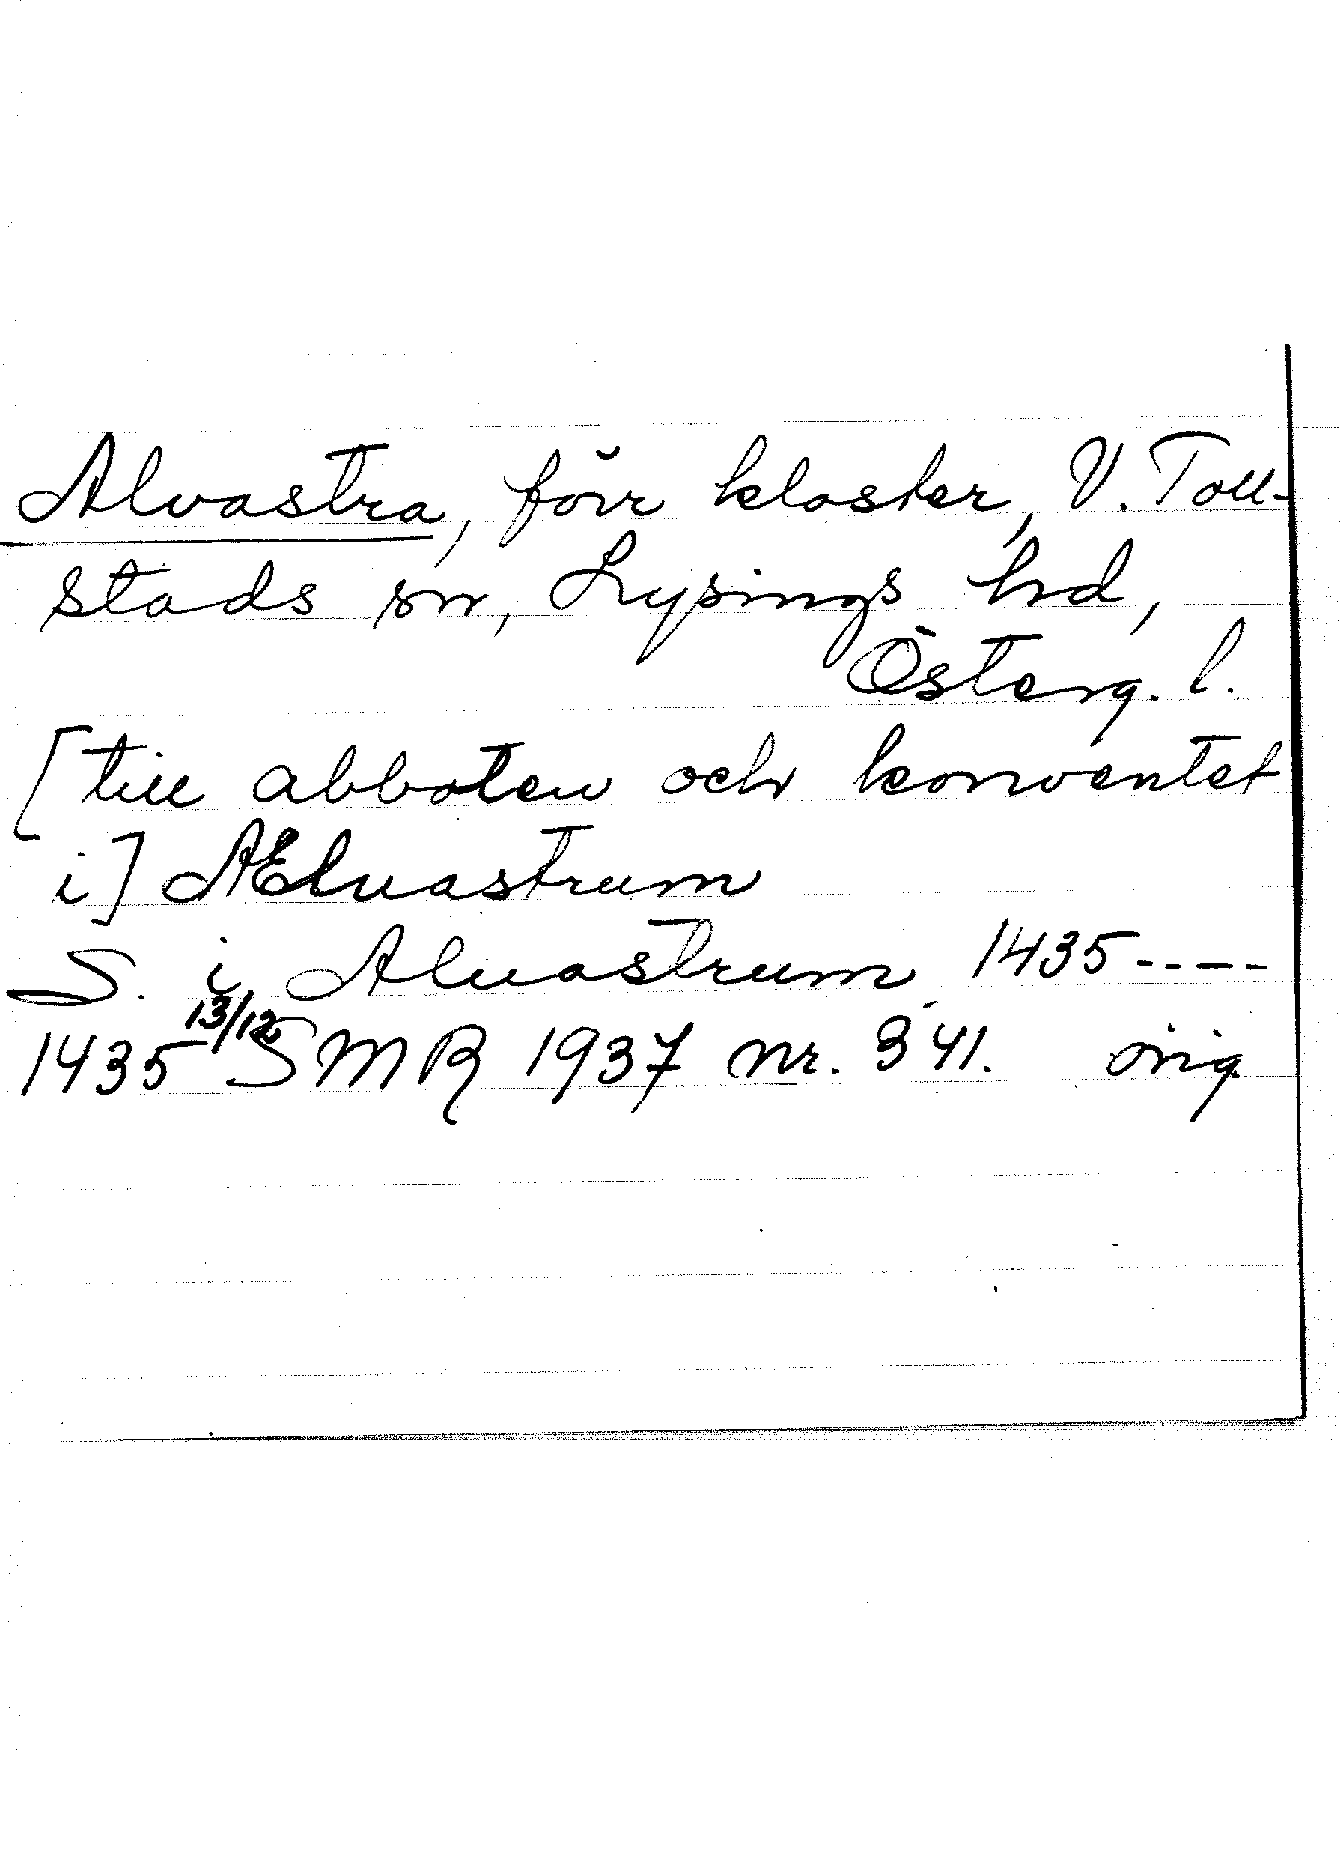 Alvastra, förr kloster, V. Toll-
stads sn, Lysings hd,
Österg. l.
[till abboten och konventet
i] AElvastrum
S. i Alvastrum 1435----
1435 13/12 SMR 1937 nr. 341. orig.